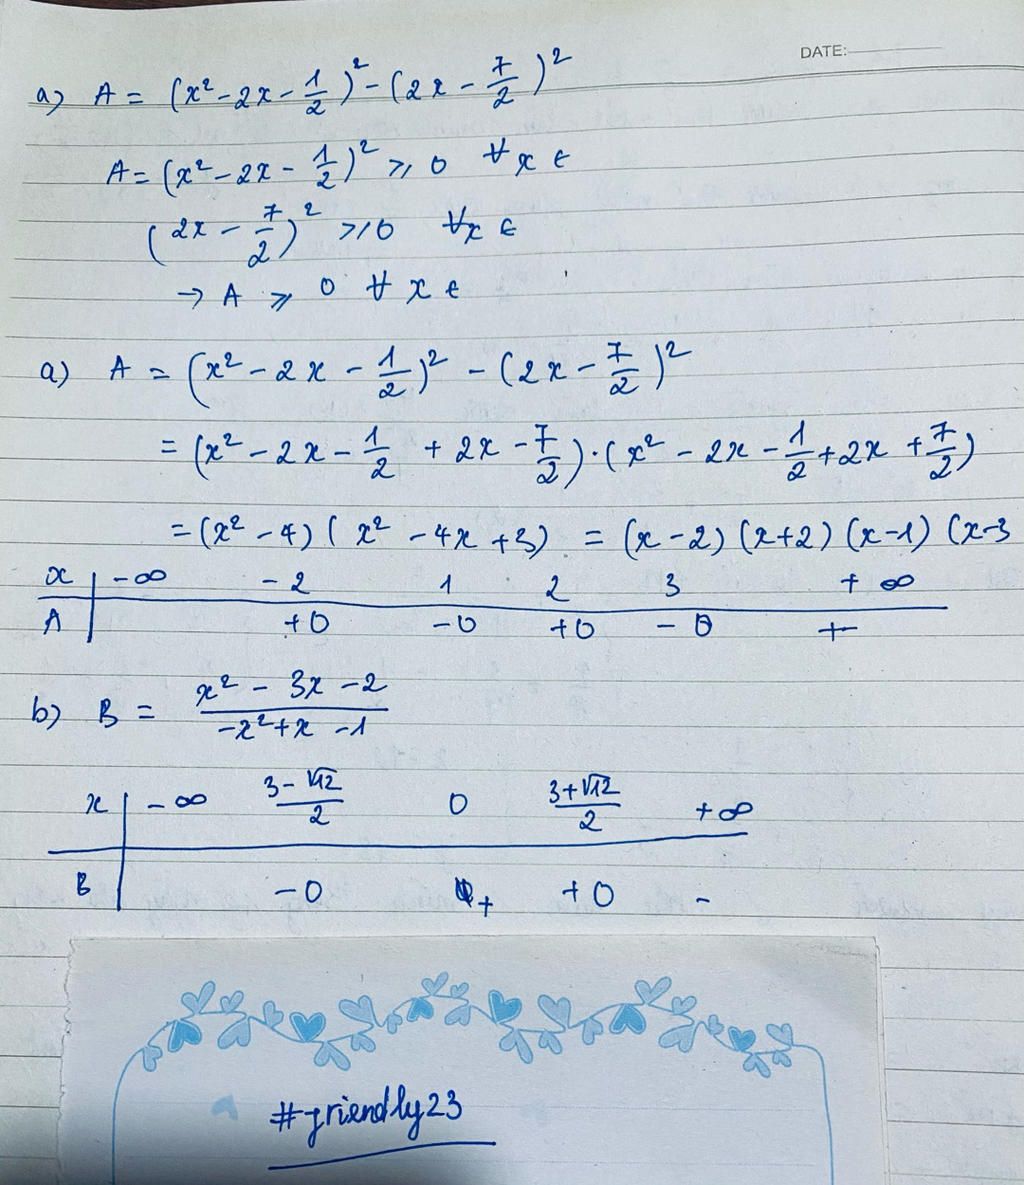 DATE:
a) A = (x² - 2x - 1/2)² - (2x - 7/2)²
A = (x² - 2x - 1/2)² ⩾ 0 ∀ x ∈
(2x - 7/2)² ⩾ 0 ∀x ∈
→ A ⩾ 0 ∀ x ∈
a) A = (x² - 2x - 1/2)² - (2x - 7/2)²
= (x² - 2x - 1/2 + 2x - 7/2).(x² - 2x - 1/2 + 2x + 7/2)
= (x² - 4)(x² - 4x + 3) = (x - 2)(x + 2)(x - 1)(x - 3
x | -∞ -2 1 2 3 +∞
A | +0 -0 +0 -0 +
b) B = (x² - 3x - 2)/(-x² + x - 1)
x | -∞ (3 - √12)/2 0 (3 + √12)/2 +∞
B | -0 + +0 -
#friendly23